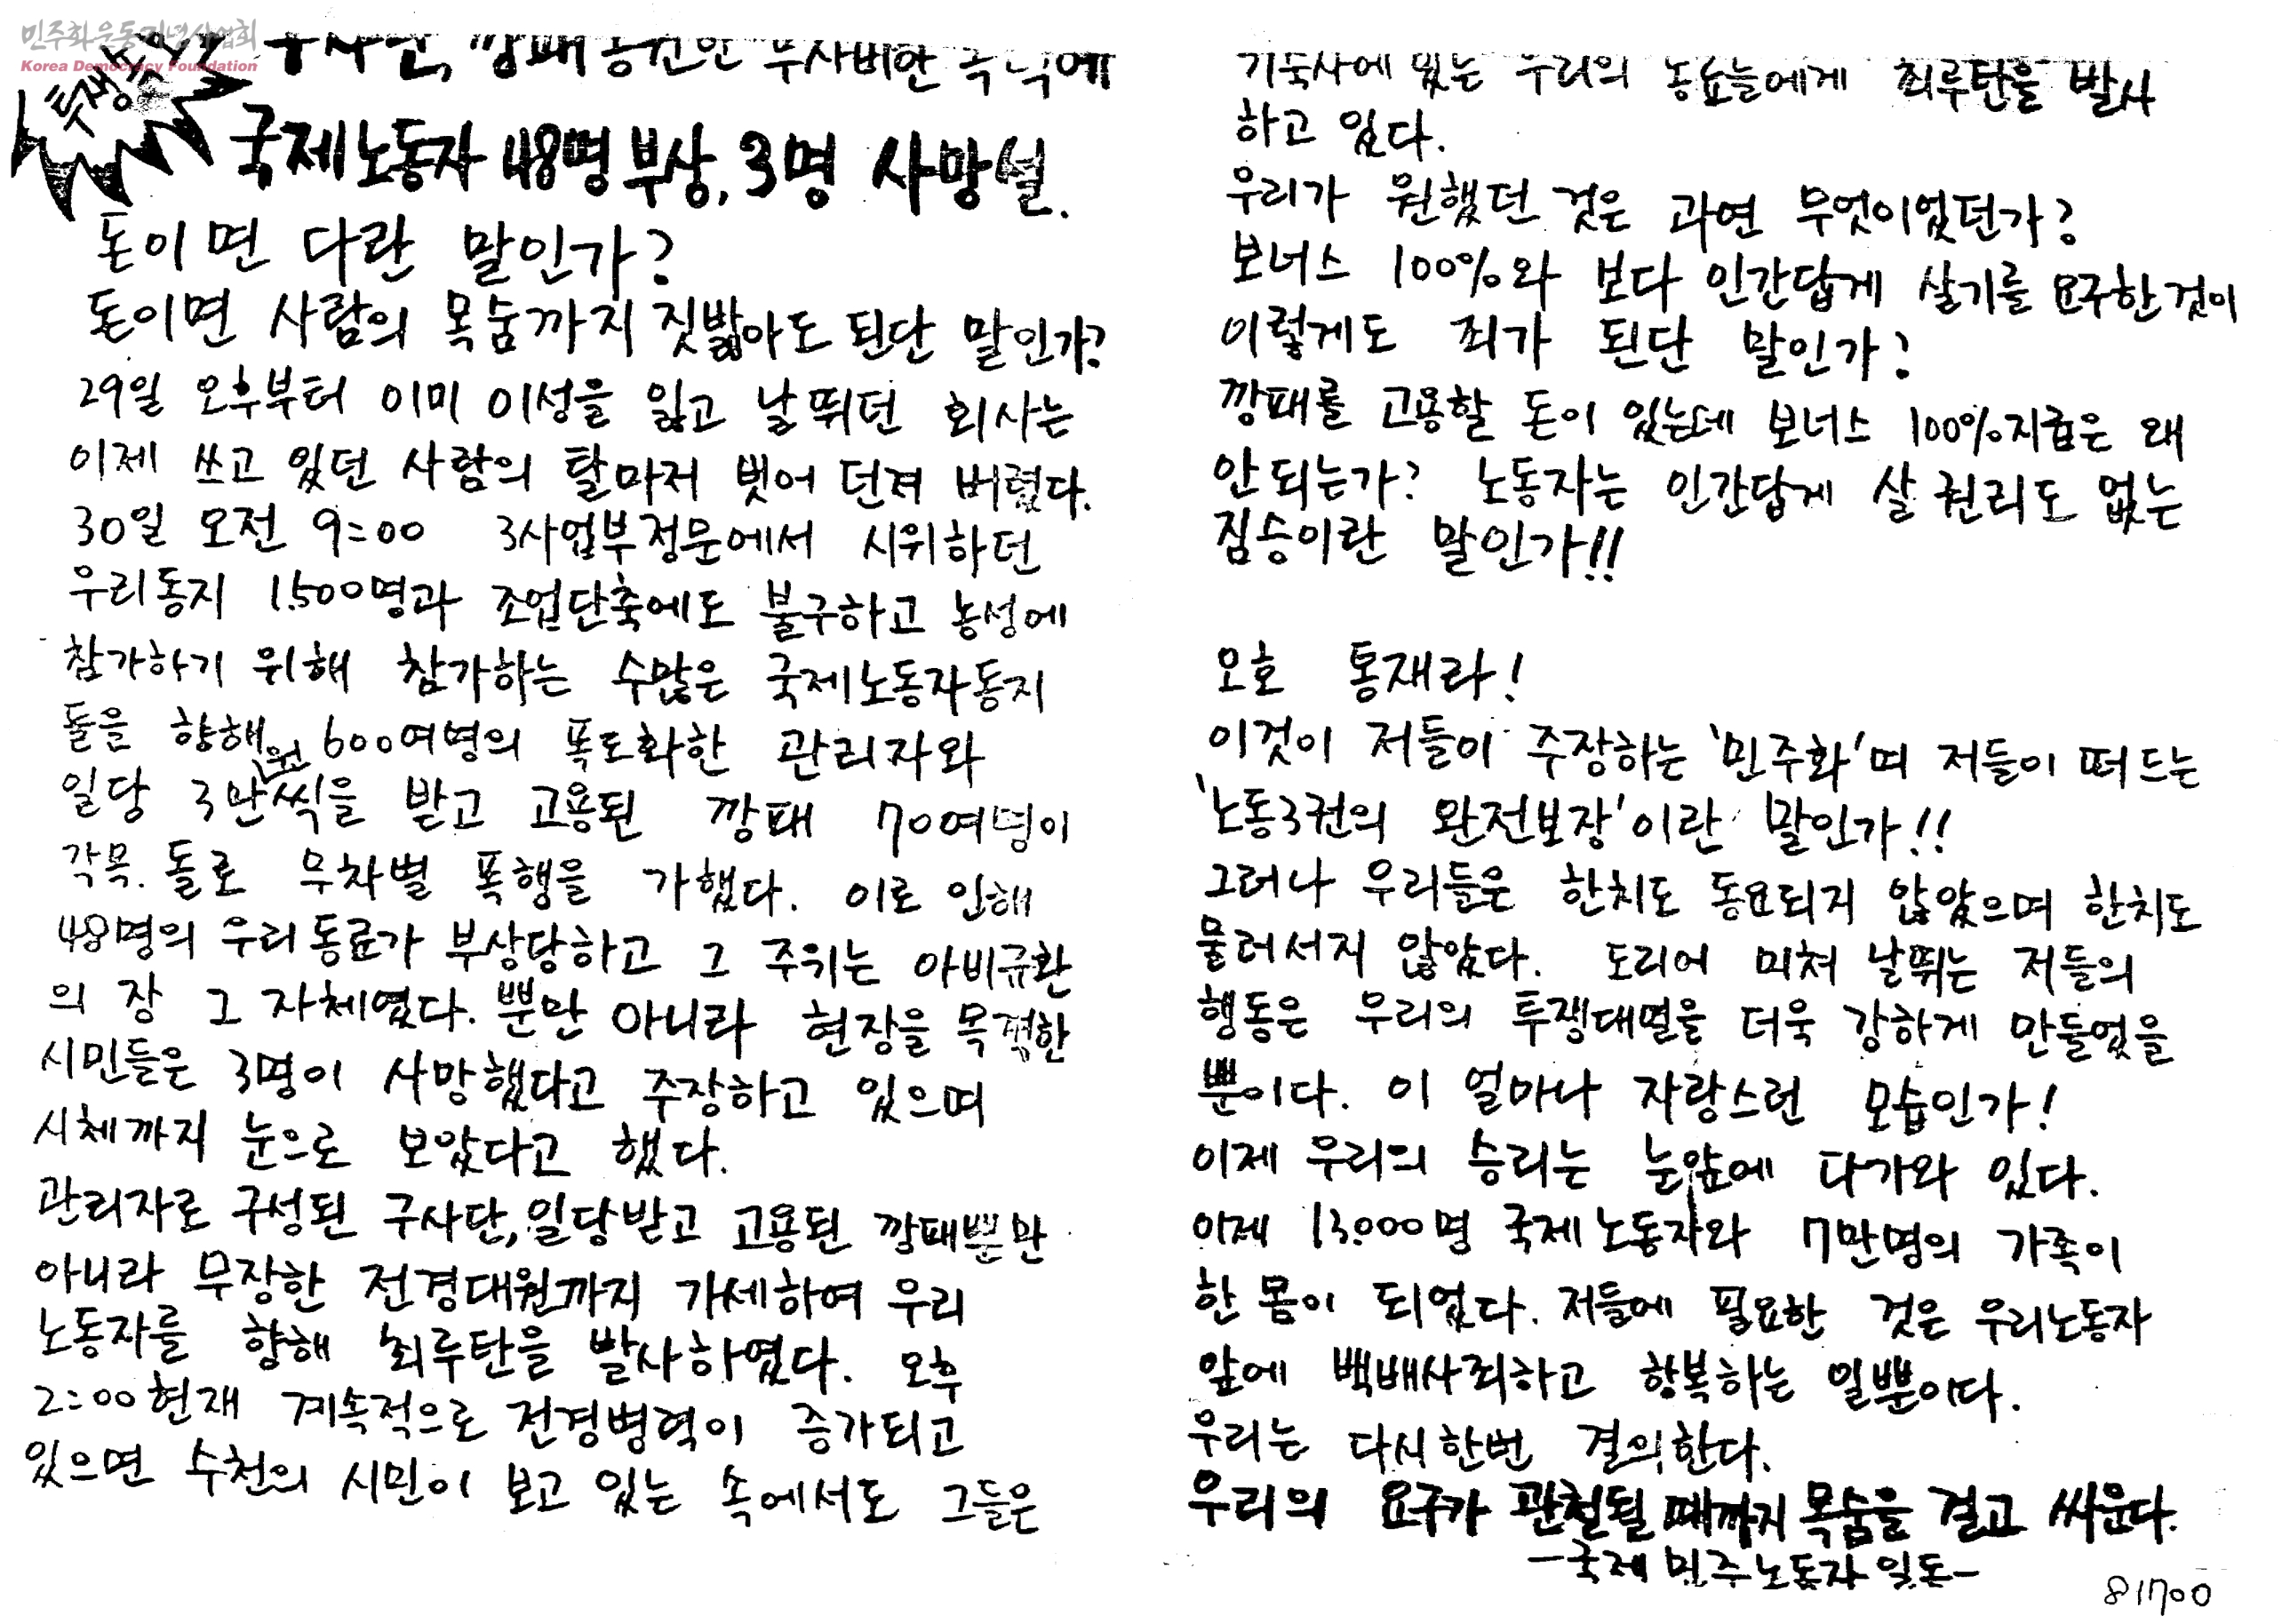 민주화운동기념사업회
Korea Democracy Foundation
투쟁
구사단, 깡패 동원한 무자비한 폭력에
국제노동자 48명 부상, 3명 사망설.
돈이면 다란 말인가?
돈이면 사람의 목숨까지 짓밟아도 된단 말인가?
29일 오후부터 이미 이성을 잃고 날뛰던 회사는
이제 쓰고 있던 사람의 탈마저 벗어 던져 버렸다.
30일 오전 9:00 3사업부정문에서 시위하던
우리동지 1,500명과 조업단축에도 불구하고 농성에
참가하기 위해 참가하는 수많은 국제노동자동지
들을 향해 600여명의 폭도화한 관리자와
일당 3만원씩을 받고 고용된 깡패 70여명이
각목. 돌로 무차별 폭행을 가했다. 이로 인해
48명의 우리동료가 부상당하고 그 주위는 아비규환
의 장 그 자체였다. 뿐만 아니라 현장을 목격한
시민들은 3명이 사망했다고 주장하고 있으며
시체까지 눈으로 보았다고 했다.
관리자로 구성된 구사단, 일당받고 고용된 깡패뿐만
아니라 무장한 전경대원까지 가세하여 우리
노동자를 향해 최루탄을 발사하였다. 오후
2:00현재 계속적으로 전경병력이 증가되고
있으면 수천의 시민이 보고 있는 속에서도 그들은
기숙사에 있는 우리의 동료들에게 최루탄을 발사
하고 있다.
우리가 원했던 것은 과연 무엇이었던가?
보너스 100%와 보다 인간답게 살기를 요구한것이
이렇게도 죄가 된단 말인가?
깡패를 고용할 돈이 있는데 보너스 100%지급은 왜
안되는가? 노동자는 인간답게 살 권리도 없는
짐승이란 말인가!!
오호 통재라!
이것이 저들이 주장하는 '민주화'며 저들이 떠드는
'노동3권의 완전보장'이란 말인가!!
그러나 우리들은 한치도 동요되지 않았으며 한치도
물러서지 않았다. 도리어 미쳐 날뛰는 저들의
행동은 우리의 투쟁대열을 더욱 강하게 만들었을
뿐이다. 이 얼마나 자랑스런 모습인가!
이제 우리의 승리는 눈앞에 다가와 있다.
이제 13,000명 국제노동자와 7만명의 가족이
한 몸이 되었다. 저들에 필요한 것은 우리노동자
앞에 백배사죄하고 항복하는 일뿐이다.
우리는 다시한번 결의한다.
우리의 요구가 관철될 때까지 목숨을 걸고 싸운다.
-국제민주노동자일동-
81700